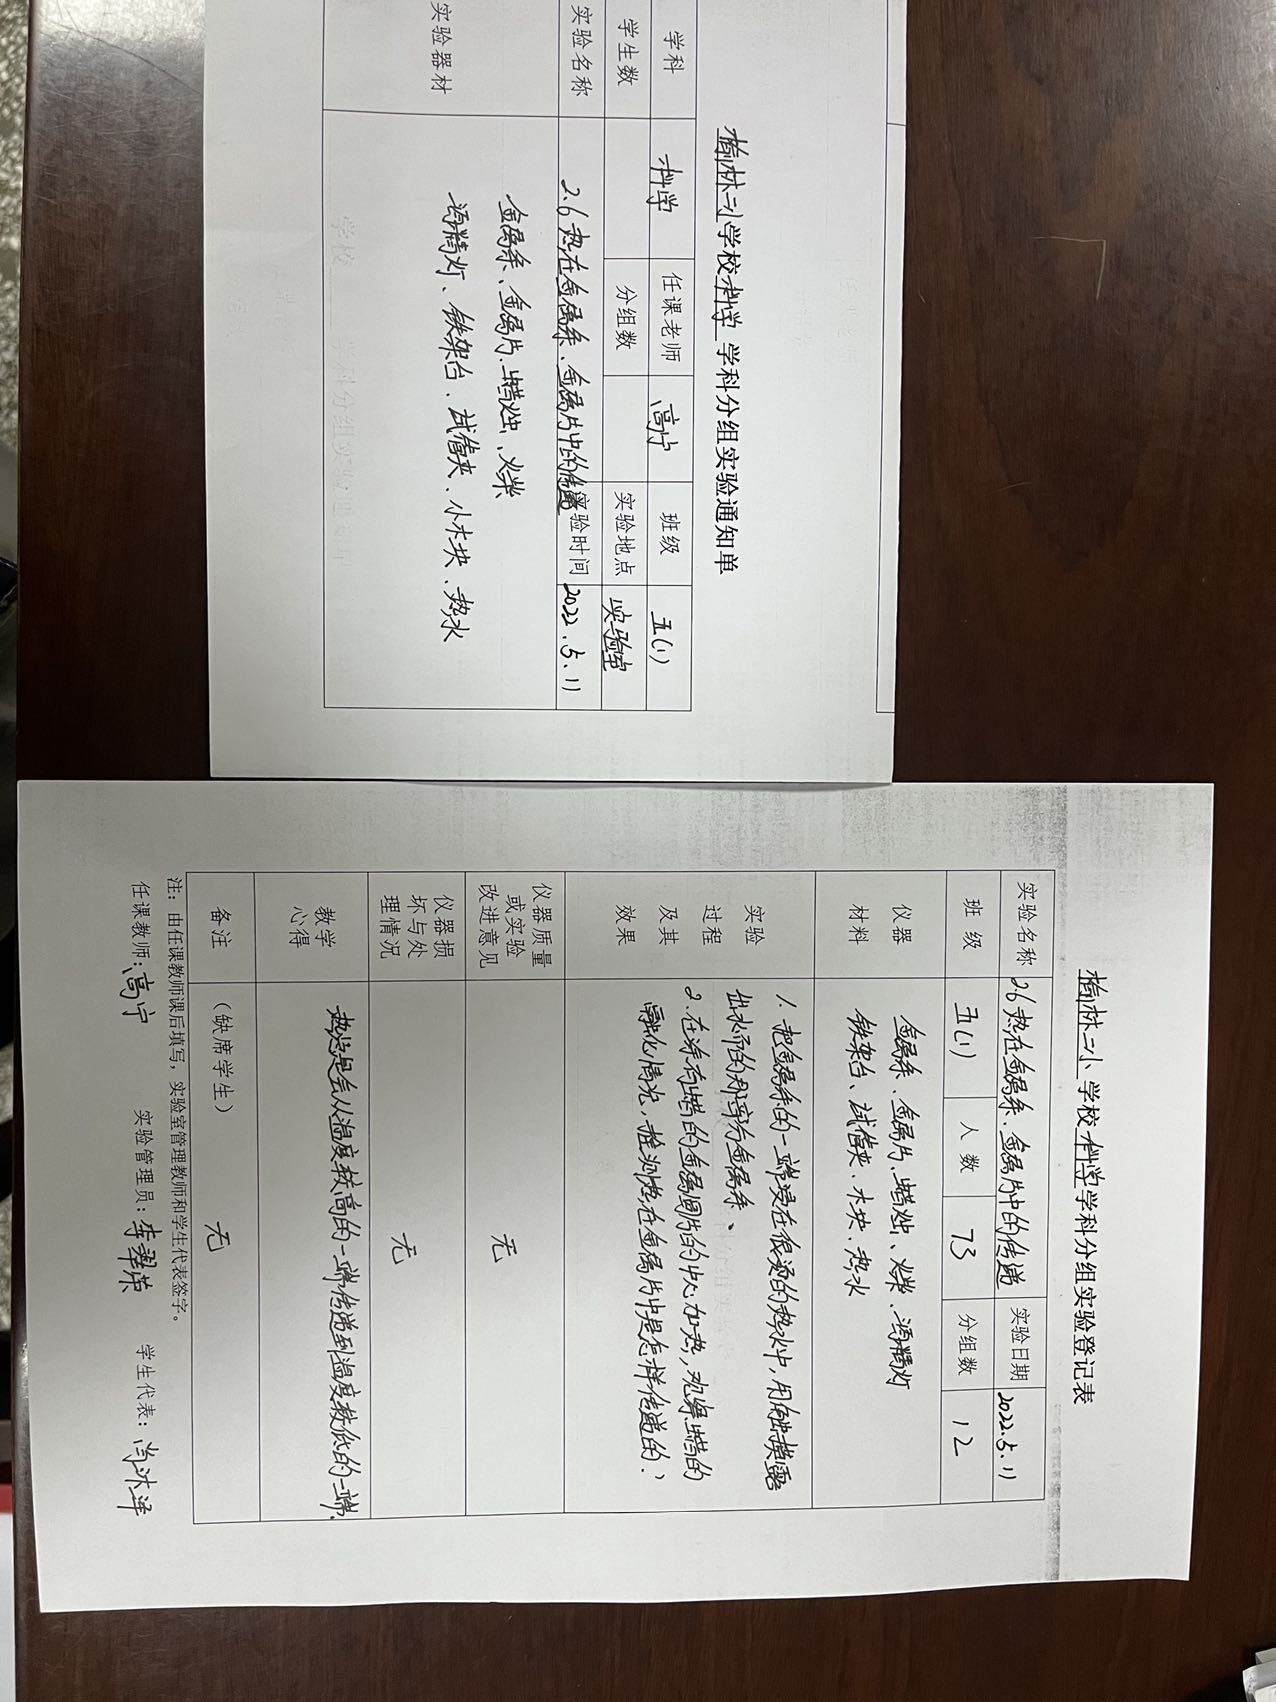 榆林二小学校科学学科分组实验通知单
学科 科学 任课老师 高宁 班级 五(1)
学生数 分组数 实验地点 实验室
实验名称 2.6热在金属条、金属片中的传递 实验时间 2022.5.11
实验器材 金属条、金属片、蜡烛、火柴
酒精灯、铁架台、试管夹、小木块、热水
榆林二小学校科学学科分组实验登记表
实验名称 2.6热在金属条、金属片中的传递 实验日期 2022.5.11
班级 五(1) 人数 73 分组数 12
仪器 金属条、金属片、蜡烛、火柴、酒精灯
材料 铁架台、试管夹、木块、热水
实验 1.把金属条的一端浸在很烫的热水中,用手触摸露
过程 出水面的那部分金属条、
及其 2.在涂有蜡的金属圆片的中心加热,观察蜡的
效果 融化情况,推测热在金属片中是怎样传递的?
仪器质量
或实验 无
改进意见
仪器损
坏与处 无
理情况
教学 热总是会从温度较高的一端传递到温度较低的一端.
心得
备注 (缺席学生) 无
注:由任课教师课后填写,实验室管理教师和学生代表签字。
任课教师:高宁 实验管理员:李翠荣 学生代表: